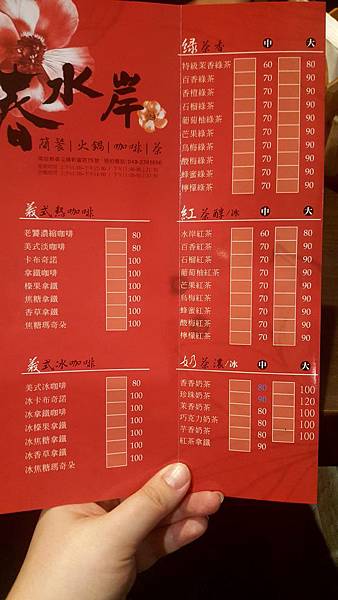 春水岸
簡餐|火鍋|咖啡|茶
義式熱咖啡
老饕濃縮咖啡 80
美式淡咖啡 80
卡布奇諾 100
拿鐵咖啡 100
榛果拿鐵 100
焦糖拿鐵 100
香草拿鐵 100
焦糖瑪奇朵 100
義式冰咖啡
美式冰咖啡 80
冰卡布奇諾 100
冰拿鐵咖啡 100
冰榛果拿鐵 100
冰焦糖拿鐵 100
冰香草拿鐵 100
冰焦糖瑪奇朵 100
綠茶香 中 大
特級茉香綠茶 60 80
百香綠茶 70 90
香橙綠茶 70 90
石榴綠茶 70 90
葡萄柚綠茶 70 90
芒果綠茶 70 90
烏梅綠茶 70 90
酸梅綠茶 70 90
蜂蜜綠茶 70 90
檸檬綠茶 70 90
紅茶醇/冰 中 大
水岸紅茶 60 80
百香紅茶 70 90
石榴紅茶 70 90
葡萄柚紅茶 70 90
芒果紅茶 70 90
烏梅紅茶 70 90
蜂蜜紅茶 70 90
酸梅紅茶 70 90
檸檬紅茶 70 90
奶茶濃/冰 中 大
香香奶茶 80 100
珍珠奶茶 90 120
茉香奶茶 80 100
巧克力奶茶 80 100
芋香奶茶 80 100
紅茶拿鐵 90